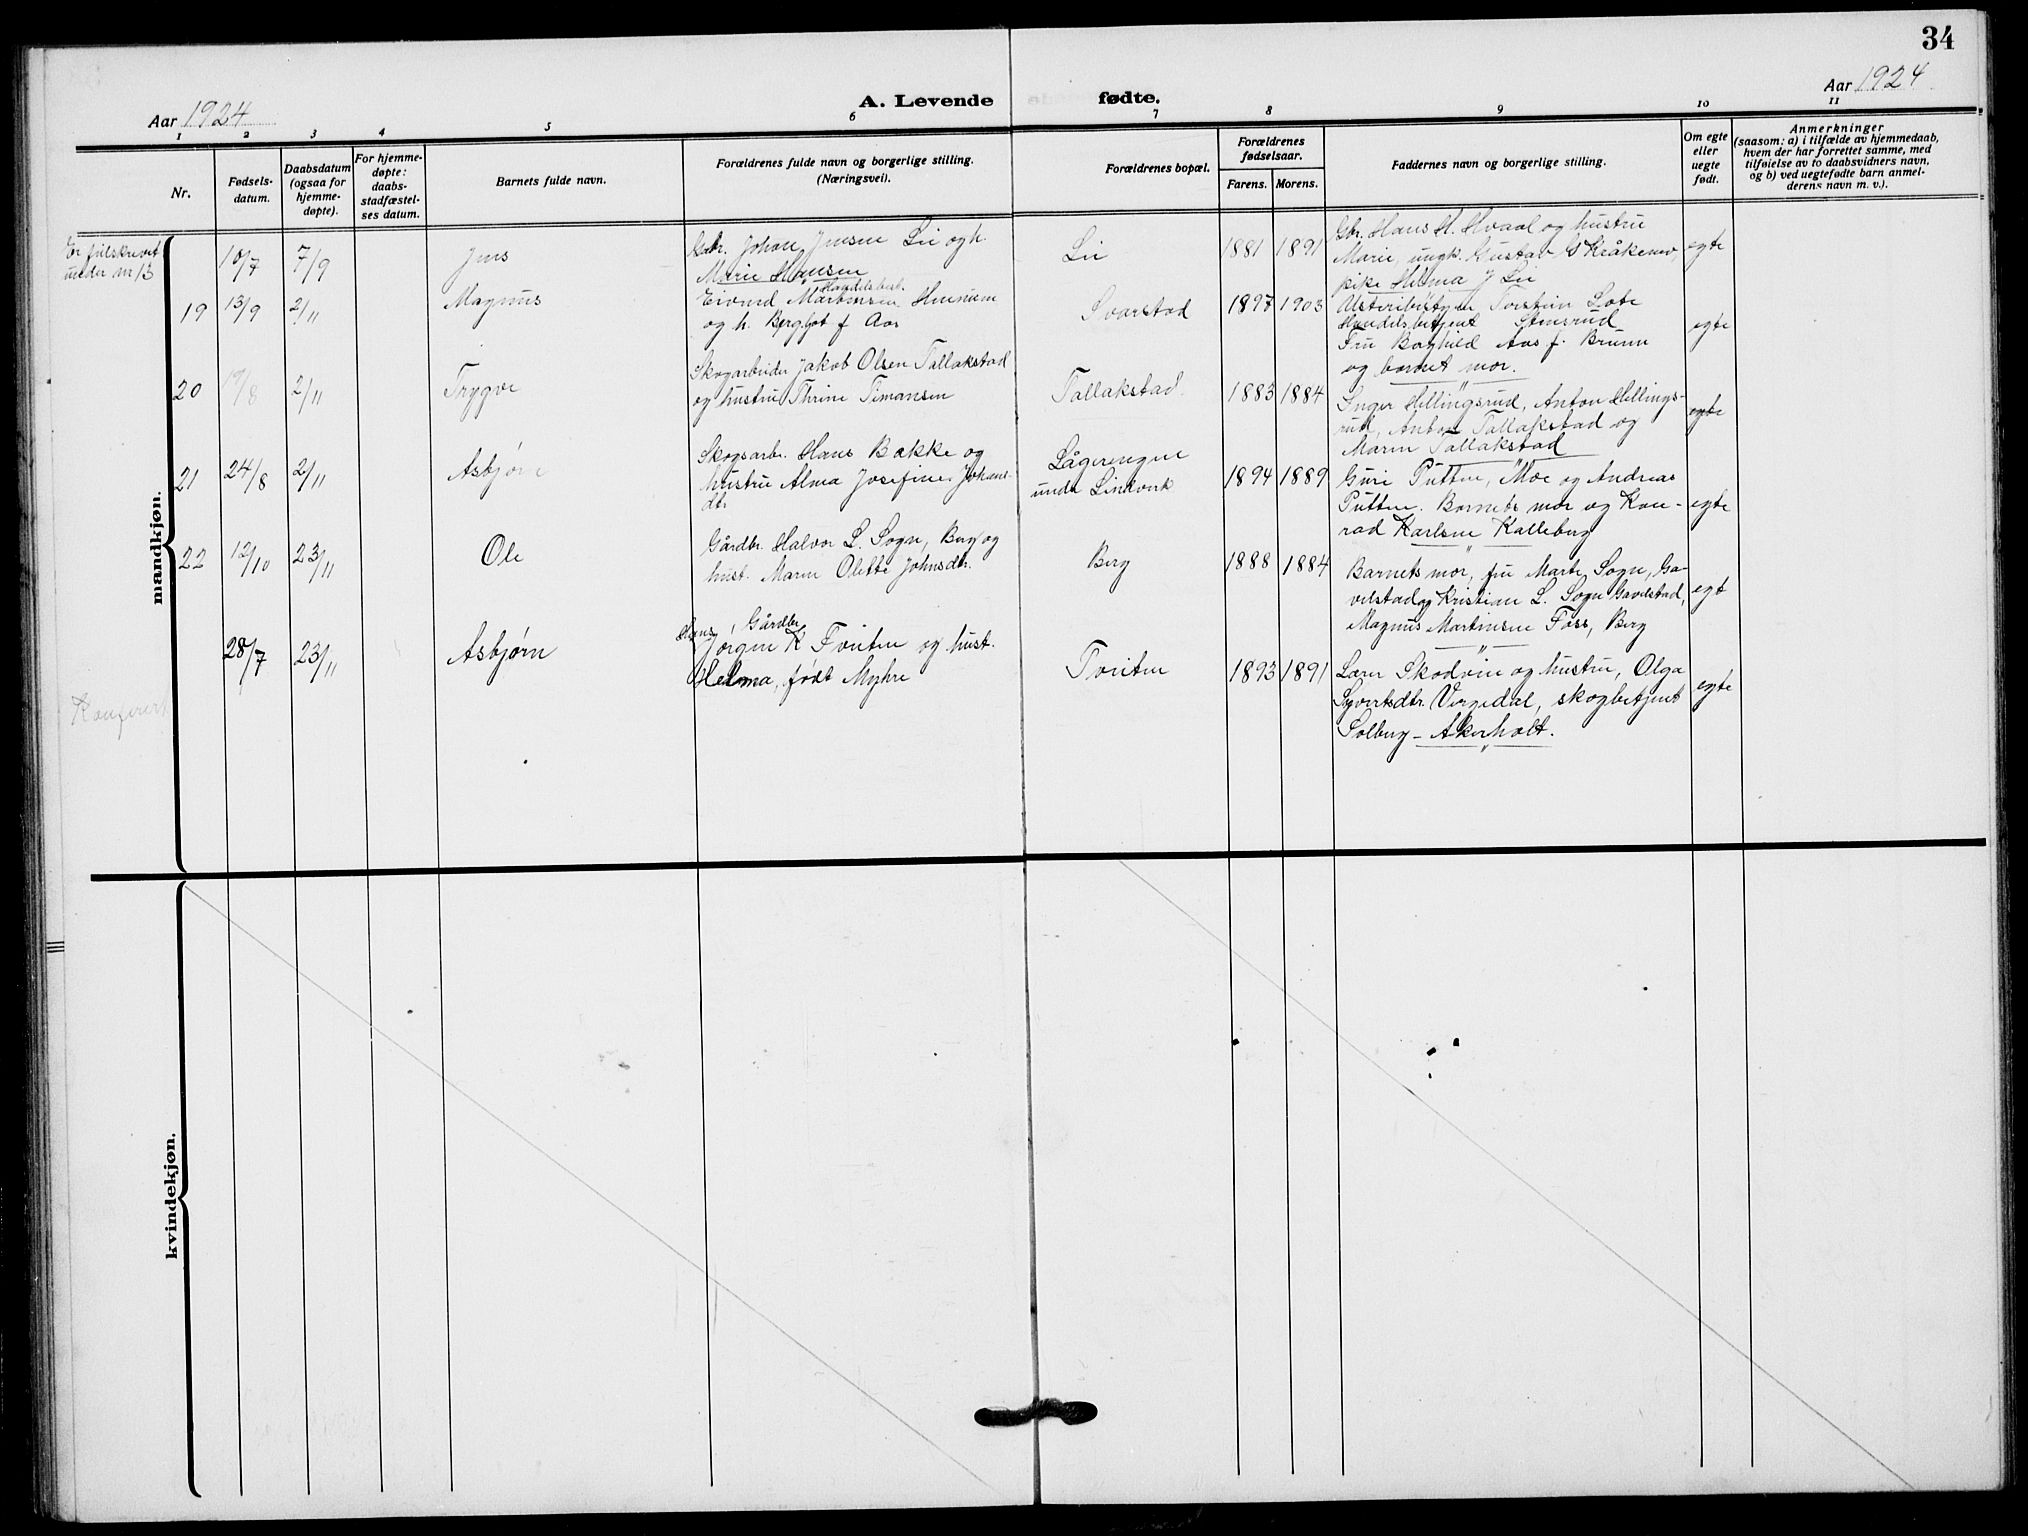 34
Aar 1924
A. Levende fødte.
Aar 1924
1 2 3 4 5 6 7 8 9 10 11
Nr.
Fødsels-
datum.
Daabsdatum
(ogsaa for
hjemme-
døpte).
For hjemme-
døpte:
daabs-
stadfæstel-
ses datum.
Barnets fulde navn.
Forældrenes fulde navn og borgerlige stilling.
(Næringsvei).
Forældrenes bopæl.
Forældrenes
fødselsaar.
Farens. Morens.
Faddernes navn og borgerlige stilling.
Om egte
eller
uegte
født.
Anmerkninger
(saasom: a) i tilfælde av hjemmedaab,
hvem der har forrettet samme, med
tilføielse av to daabsvidners navn,
og b) ved uegtefødte barn anmel-
derens navn m. v.).
mandkjøn.
Er
under nr 13
10/7 7/9 Jens
Gbr. Johan Jensen Lie og h.
Marie Hansen
Lie 1881 1891
Gbr. Hans H. Hvaal og hustru
Marie, ungk. Gustav G Kråkenes,
pike Helma J Lie
egte
19 13/9 2/11 Magnus
Handelsbest.
Eivind Martinsen
og h. Bergljot f Aas
Svarstad 1897 1903
Torstein
Handelsbetjent Stensrud
Fru Borghild Aas f. Bruun
og barnet mor.
egte
20 19/8 2/11 Trygve
Skogarbeider Jakob Olsen Tallakstad
og hustru Thrine Timansen
Tallakstad 1883 1884
Inger Hellingsrud, Anton Hillings-
rud, Anton Tallakstad og
Maren Tallakstad
egte
21 24/8 2/11 Asbjørn
Skogsarb. Hans Bække og
hustru Alma Josefine Johans-
dtr
Lågerengen
under Lindvik
1894 1889
Guri Putten, Moe og Andreas
Putten. Barnets mor og Kon-
rad Karlsen Kalleberg
egte
22 12/10 23/11 Ole
Gårdbr. Halvor L. Sogn, Berg og
hust. Maren Olette Johnsdtr.
Berg 1888 1884
Barnets mor, fru Marte Sogn, Ga-
velstad og Kristian L. Sogn Gavelstad,
Magnus Martinsen Foss, Berg
egt
28/7 23/11 Asbjørn
Hans, Gårdbr.
Jørgen K Tveiten og hust.
Helma, født Myhre
Tveiten 1893 1891
Lærer Skodvin og hustru, Olga
Syvertsdtr. Vergedal, skogbetjent
Solberg - Akerholt.
egte
kvindekjøn.